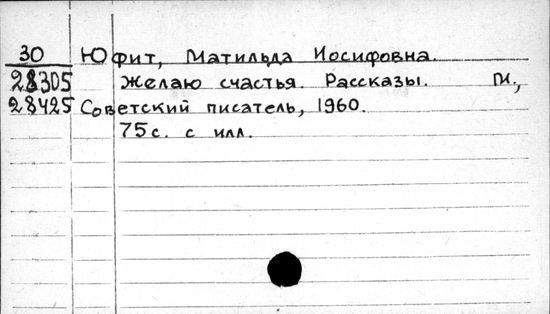 30 Юфит, Матильда Иосифовна.
28305 Желаю счастья. Рассказы. М.,
28425 Советский писатель, 1960.
75с. с илл.